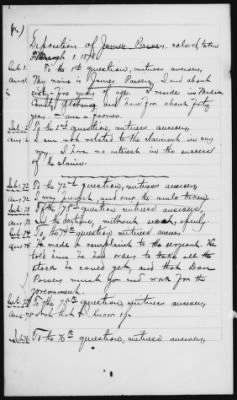 Deposition of James Parsey, colored, taken
March 1, 1878.
Int. 1. To the 1st question, witness answers,
Ans. 1. My name is James Parsey, I am about
sixty-five years of age. I reside in Madison
County, Alabama and have for about forty
years. am a farmer.
Int. 2. To the 2nd question, witness answers,
Ans. 2. I am not related to the claimant in any
way. I have no interest in the success
of the claim.
Int. 72. To the 72nd question, witness answers,
Ans. 72. I was present, and saw the mules taken
Int. 73. To the 73rd question, witness answers,
Ans. 73. In the daytime, without secrecy, openly.
Int. 74. To the 74th question, witness answers,
Ans. 74. He made a complaint to the sergeant. He
told him he had orders to take all the
stock he could get, and that Dave
much for the
government.
Int. 75. To the 75th question, witness answers,
Ans. 75. I know of.
Int. 76. To the 76th question, witness answers,